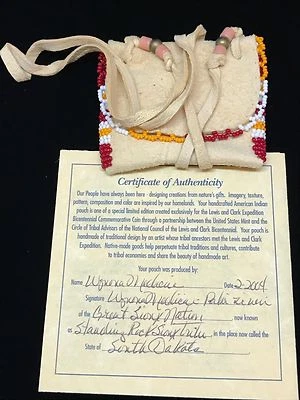 Certificate of Authenticity
Our People have always been here - designing creations from nature's gifts. Imagery, texture,
pattern, composition and color are inspired by our homelands. Your handcrafted American Indian
pouch is one of a special limited edition created exclusively for the Lewis and Clark Expedition
Bicentennial Commemorative Coin through a partnership between the United States Mint and the
Circle of Tribal Advisors of the National Council of the Lewis and Clark Bicentennial. Your pouch is
handmade of traditional design by an artist whose tribal ancestors met the Lewis and Clark
Expedition. Native-made goods help perpetuate tribal traditions and cultures, contribute
to tribal economies and share the beauty of handmade art.
Your pouch was produced by:
Name Date 2-2004
Signature
of the Great Sioux Nation, now known
as Standing Rock Sioux, in the place now called the
State of South Dakota